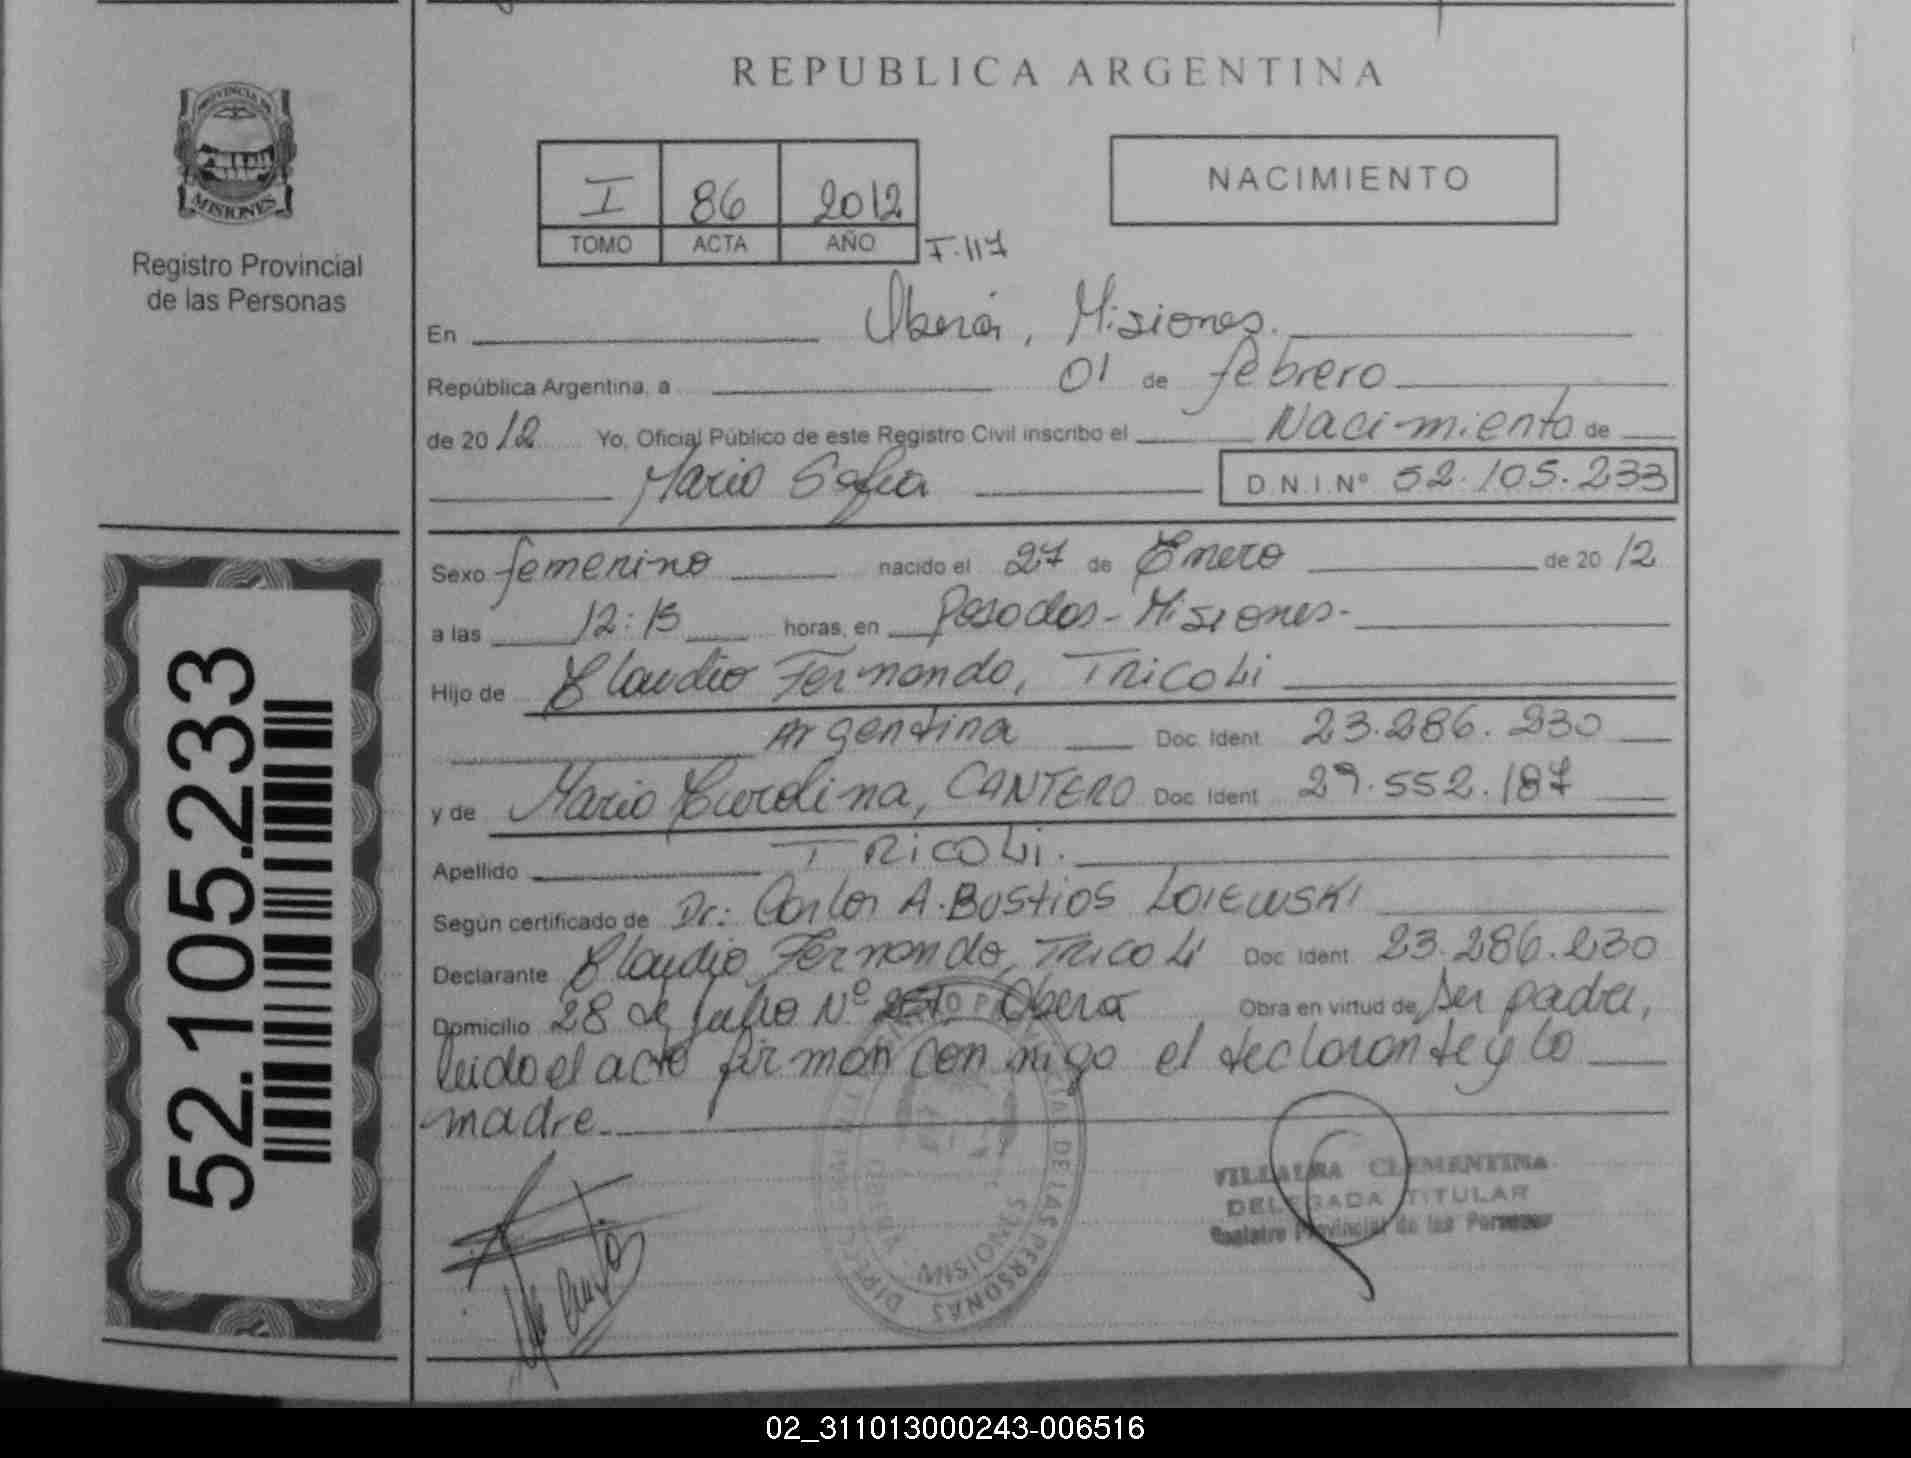 REPUBLICA ARGENTINA
PROVINCIA DE
MISIONES
Registro Provincial
de las Personas
I 86 2012
TOMO ACTA AÑO
F.117
NACIMIENTO
En Oberá, Misiones.
República Argentina, a 01 de febrero
de 2012 Yo, Oficial Público de este Registro Civil inscribo el Nacimiento de
María Sofía D.N.I. Nº 52.105.233
Sexo femenino nacido el 27 de Enero de 2012
a las 12:13 horas, en Posadas - Misiones-
Hijo de Claudio Fernando, TRICOLI
Argentina Doc. Ident. 23.286.230
y de María Carolina, CANTERO Doc. Ident. 29.552.187
Apellido TRICOLI.
Según certificado de Dr.: Carlos A. Bustios ZOIEWSKI
Declarante Claudio Fernando, TRICOLI Doc. Ident. 23.286.230
Domicilio 28 de Julio Nº Oberá Obra en virtud de ser padre,
leido el acta firman conmigo el declarante y la
madre.
VILLALBA CLEMENTINA
DELEGADA TITULAR
Registro Provincial de las Personas
DE LAS PERSONAS
MISIONES
52.105.233
02_311013000243-006516